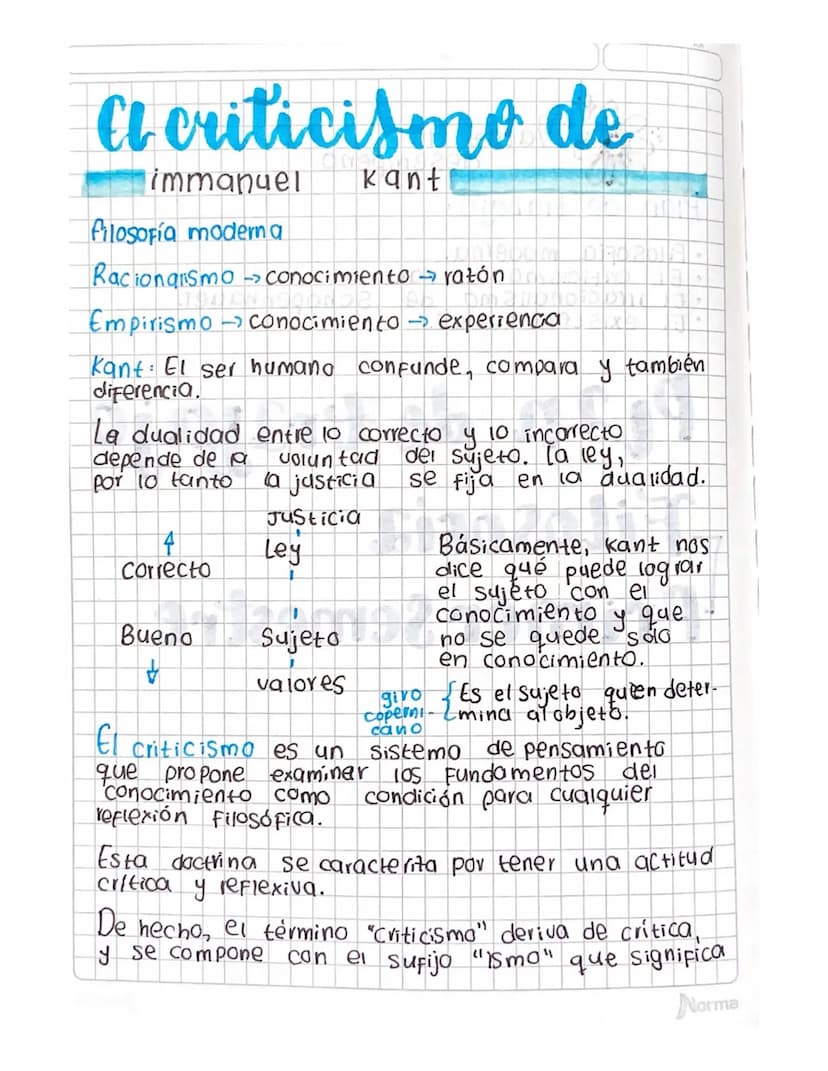 El criticismo de
immanuel kant
Filosofía moderna
Racionalismo → conocimiento → ratón
Empirismo → conocimiento → experiencia
Kant: El ser humano confunde, compara y también
diferencia.
La dualidad entre lo correcto y lo incorrecto
depende de la voluntad del sujeto. la ley,
por lo tanto la justicia se fija en la dualidad.
Justicia
Ley
correcto
Bueno
Sujeto
valores
Básicamente, kant nos
dice qué puede lograr
el sujeto con el
conocimiento y que
no se quede solo
en conocimiento.
giro
coperni-
cano
Es el sujeto quien deter-
mina al objeto.
El criticismo es un sistema de pensamiento
que propone examinar los fundamentos del
conocimiento como condición para cualquier
reflexión filosófica.
Esta doctrina se caracterita por tener una actitud
crítica y reflexiva.
De hecho, el término "criticismo" deriva de crítica,
y se compone con el sufijo "ismo" que significa
Norma